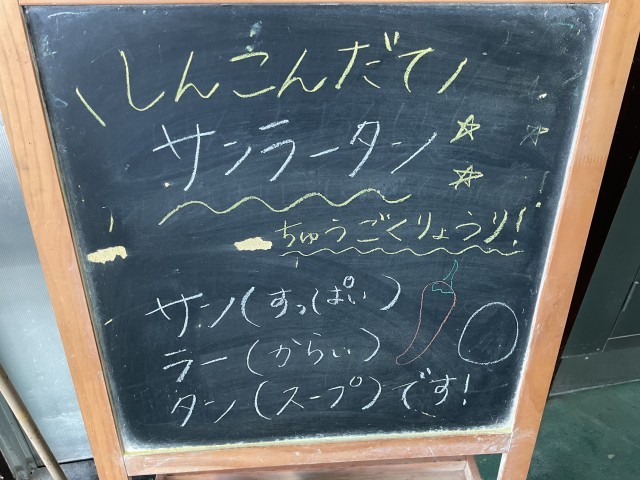 \しんこんだて/
サンラータン
ちゅうごくりょうり!
サン(すっぱい)
ラー(からい)
タン(スープ)です!